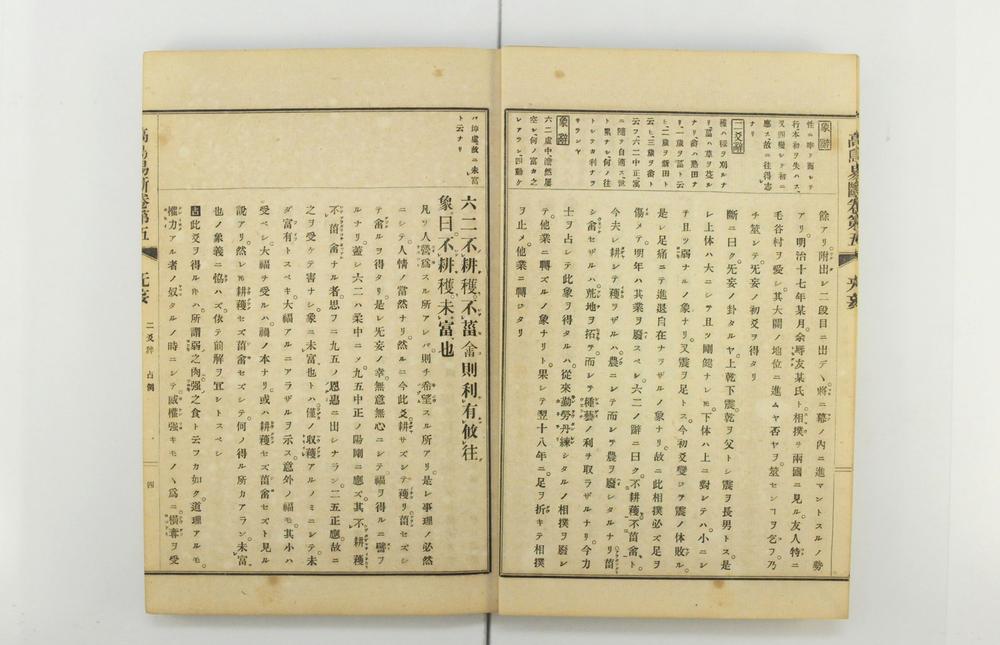 餘アリ附出シ二段目ニ出デヽ將ニ幕ノ内ニ進マントスルノ勢
アリ明治十七年某月余辱友某氏ト相撲ヲ兩國ニ見ル友人特ニ
毛谷村ヲ愛シ其大關ノ地位ニ進ムヤ否ヤヲ筮センヿヲ乞フ乃
チ筮シテ无妄ノ初爻ヲ得タリ
斷ニ曰ク无妄ノ卦タルヤ上乾下震乾ヲ父トシ震ヲ長男トス是
レ上体ハ大ニシテ且ツ剛健ナシ𪜈下体ハ上ニ對シテハ小ニシ
テ且ツ弱ナルノ象ナリ又震ヲ足トス今初爻變シテ震ノ体敗ル
是レ足痛ニテ進退自在ナラザルノ象ナリ故ニ此相撲必ズ足ヲ
傷メテ明年ハ其業ヲ廢スベシ六二ノ辭ニ曰ク不耕穫不菑畬ト
今夫レ耕シテ穫ヲザルハ農ニシテ而シテ農ヲ廢シタルナリ菑
シ畬セザルハ荒地ヲ拓テ而シテ種藝ノ利ヲ取ラザルナリ今力
士ヲ占シテ此象ヲ得タルハ從來勤勞丹練シタルノ相撲ヲ廢シ
テ他業ニ轉ズルノ象ナリト果シテ翌十八年ニ足ヲ折キテ相撲
ヲ止メ他業ニ轉ジタリ
象辭
二爻辭
種ハ稼ヲ刈ルナ
リ菑ハ草ヲ芟ル
ナリ畬ハ熟田ナ
リ一歲ヲ菑ト云
ヒ二歲ヲ新田ト
云ヒ三歲ヲ畬ト
云フ六二中正寓
ニ隨ヲ自適ス世
ト累ナシ何ノ往
トシテカ利ナラ
サランヤ
象辭
六二虛中澹然屬
空シ何ノ富カ之
レアラシ四動ケ
ハ坤虛故ニ未富
ト云ナリ
六二不耕穫不菑畬則利有攸往
象曰不耕穫未富也
凡ソ人營爲スル所アレバ則チ希望スル所アリ是レ事理ノ必然
ニシテ人情ノ當然ナリ然ルニ今此爻耕サズシテ穫リ菑セズシ
テ畬ルヲ得タリ是レ无妄ノ幸無意無心ニシテ福ヲ得ルニ譬フ
ルナリ蓋シ六二ハ柔中ニシテ九五中正ノ陽剛ニ應ズ其不耕穫
不菑畬ナル者思フニ九五ノ恩惠ニ出シナラン二五正應故ニ
之ヲ受ケテ害ナシ象ニ未富也トハ僅ノ收穫アルノミニシテ未
ダ富有トスベキ大福アルニアラザルヲ示ス意外ノ福モ其小ハ
受ベシ大福ヲ受ルハ禍ノ本ナリ或ハ耕穫セズ菑畬セズト見ル
說アリ然レ𪜈耕穫セズ菑畬セズシテ何ノ得ル所カアラン未富
也ノ象義ニ協ハズ依テ前解ヲ宜シトスベシ
占此爻ヲ得ル𪜈ハ所謂弱之肉强之食ト云フカ如ク道理アルモ
權力アル者ノ奴タルノ時ニシテ威權强キモノヽ爲ニ橫奪ヲ受
高島易斷卷第五
无妄
二爻辭
占例
四